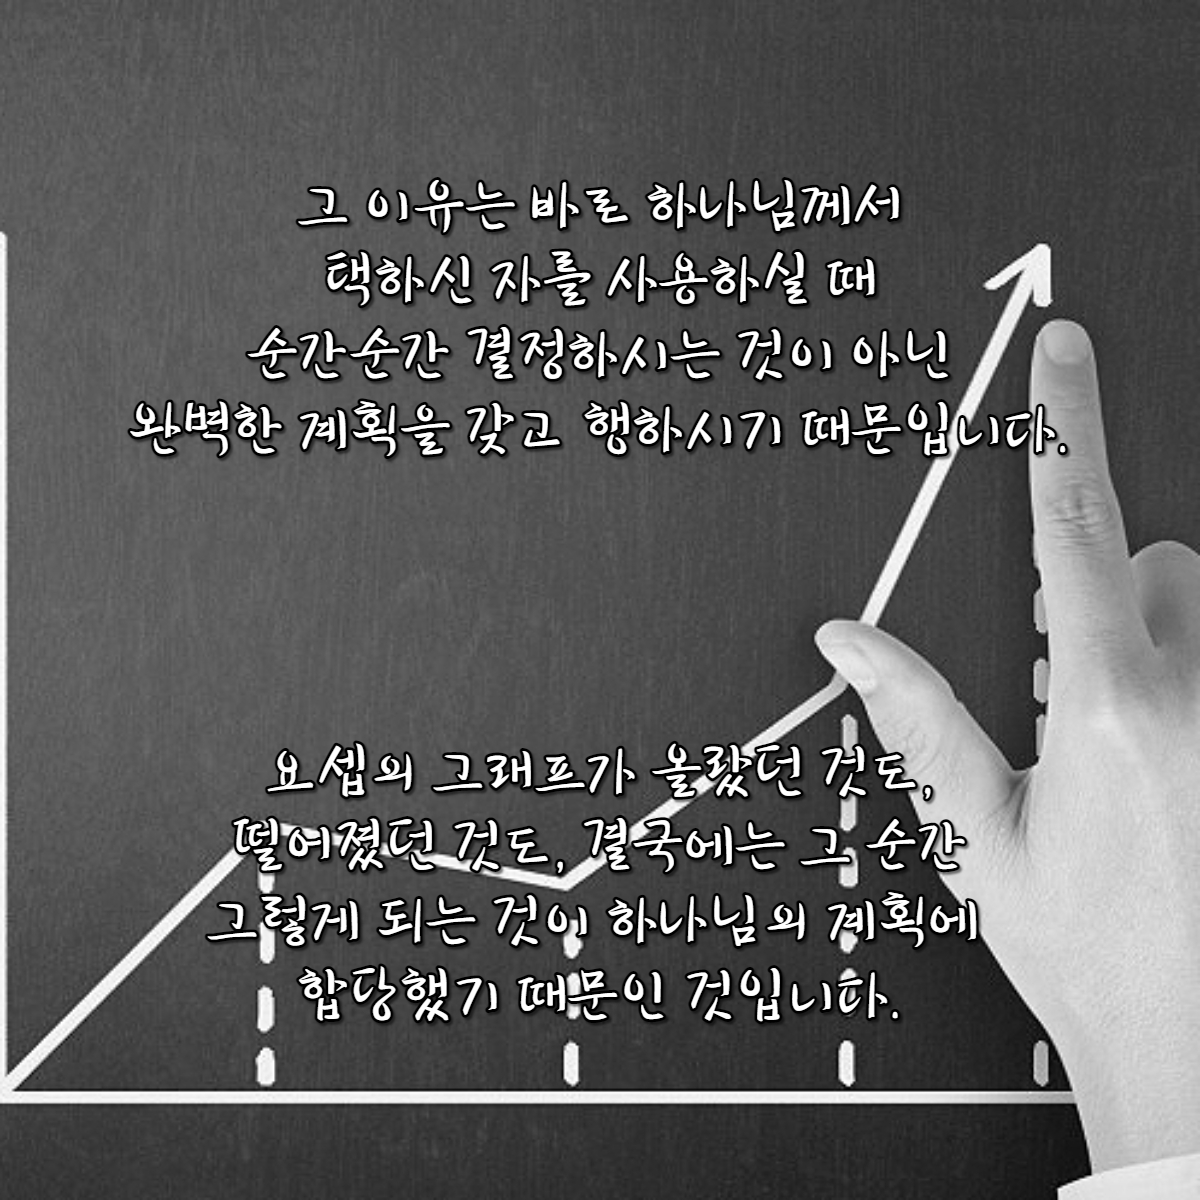 그 이유는 바로 하나님께서
택하신 자를 사용하실 때
순간순간 결정하시는 것이 아닌
완벽한 계획을 갖고 행하시기 때문입니다.
요셉의 그래프가 올랐던 것도,
떨어졌던 것도, 결국에는 그 순간
그렇게 되는 것이 하나님의 계획에
합당했기 때문인 것입니다.